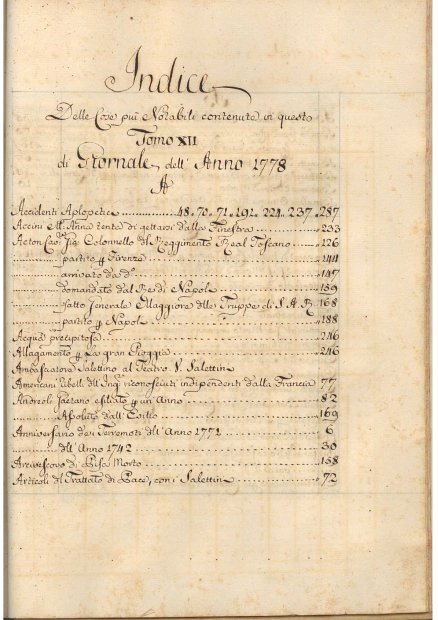 Indice
Delle Cose più Notabili contenute in questo
Tomo XII
di Giornale dell' Anno 1778
A
Accidenti Aplopetici 48. 70. 71. 191. 224. 237. 287
Accini M. Anna tenta di gettarsi dalla Finestra 233
Acton Colonnello del Reggimento Real Toscano 126
partito p Firenze 144
arrivato da dº 147
Domandato dal Re di Napoli 159
fatto Jenerale Maggiore delle Truppe di S. A. R. 168
partito p Napoli 188
Acqua precipitosa 246
Allagamento p La gran Pioggia 246
Ambasciatore Salettino al Teatro V. Salettini
Americani Ribelli dell' Ing.ª riconosciuti indipendenti dalla Francia 77
Andreoli Gaetano esiliato p un Anno 82
Assoluto dall' Esilio 169
Anniversario dei Terremoti dell' Anno 1771 6
dell' Anno 1742 30
Arcivescovo di Pisa Morto 158
Articoli del Trattato di Pace, con i Salettini 72